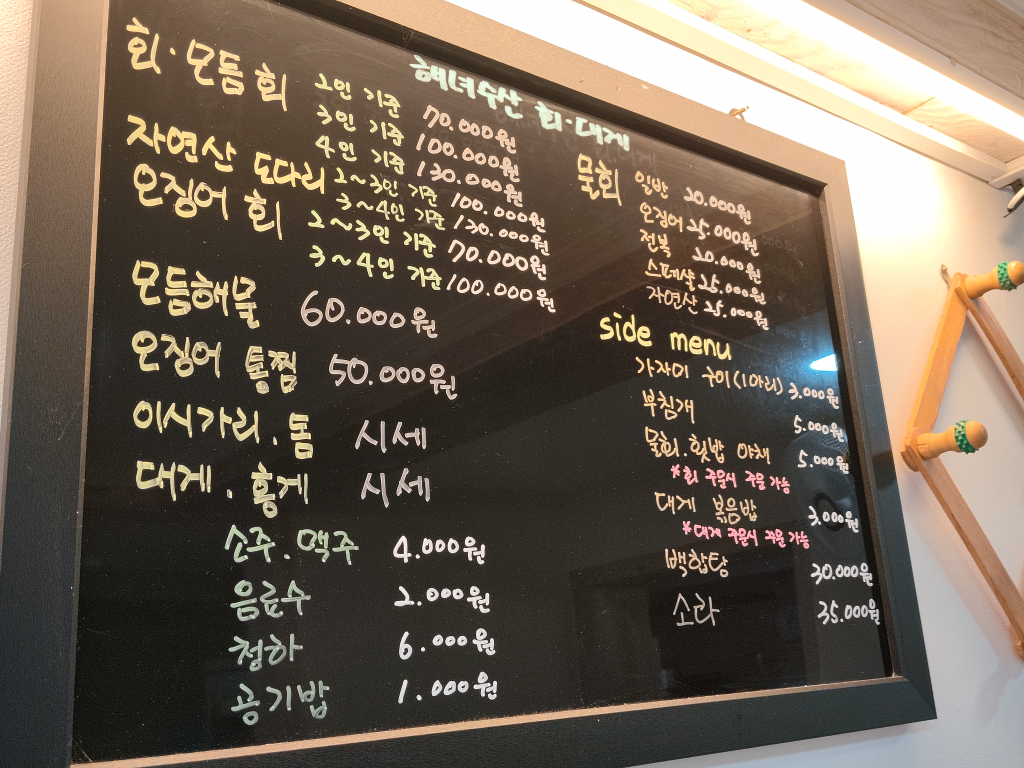 해녀수산 회·대게
회·모듬회 2인 기준 70.000원
3인 기준 100.000원
4인 기준 130.000원
자연산 도다리 2~3인 기준 100.000원
3~4인 기준 130.000원
오징어 회 2~3인 기준 70.000원
3~4인 기준 100.000원
모듬해물 60.000원
오징어 통찜 50.000원
이시가리.돔 시세
대게.홍게 시세
소주.맥주 4.000원
음료수 2.000원
청하 6.000원
공기밥 1.000원
물회 일반 20.000원
오징어 25.000원
전복 20.000원
스페셜 25.000원
자연산 25.000원
side menu
가자미 구이(1마리) 3.000원
부침개 5.000원
물회.횟밥 야채 5.000원
*회 주문시 주문 가능
대게 볶음밥 3.000원
*대게 주문시 주문 가능
백합탕 30.000원
소라 35.000원